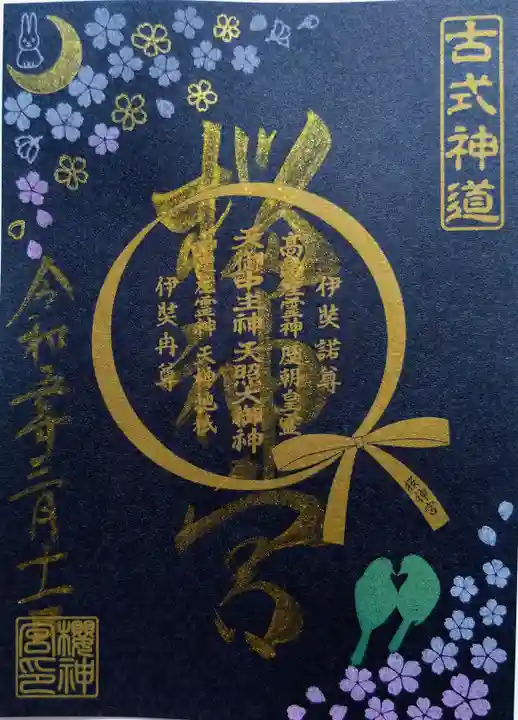 古式神道
桜神宮
伊奘諾尊
高皇産霊神 歴朝皇霊
天御中主神 天照大御神
神皇産霊神 天神地祇
伊奘冉尊
桜神宮
令和五年三月十一
櫻神宮印